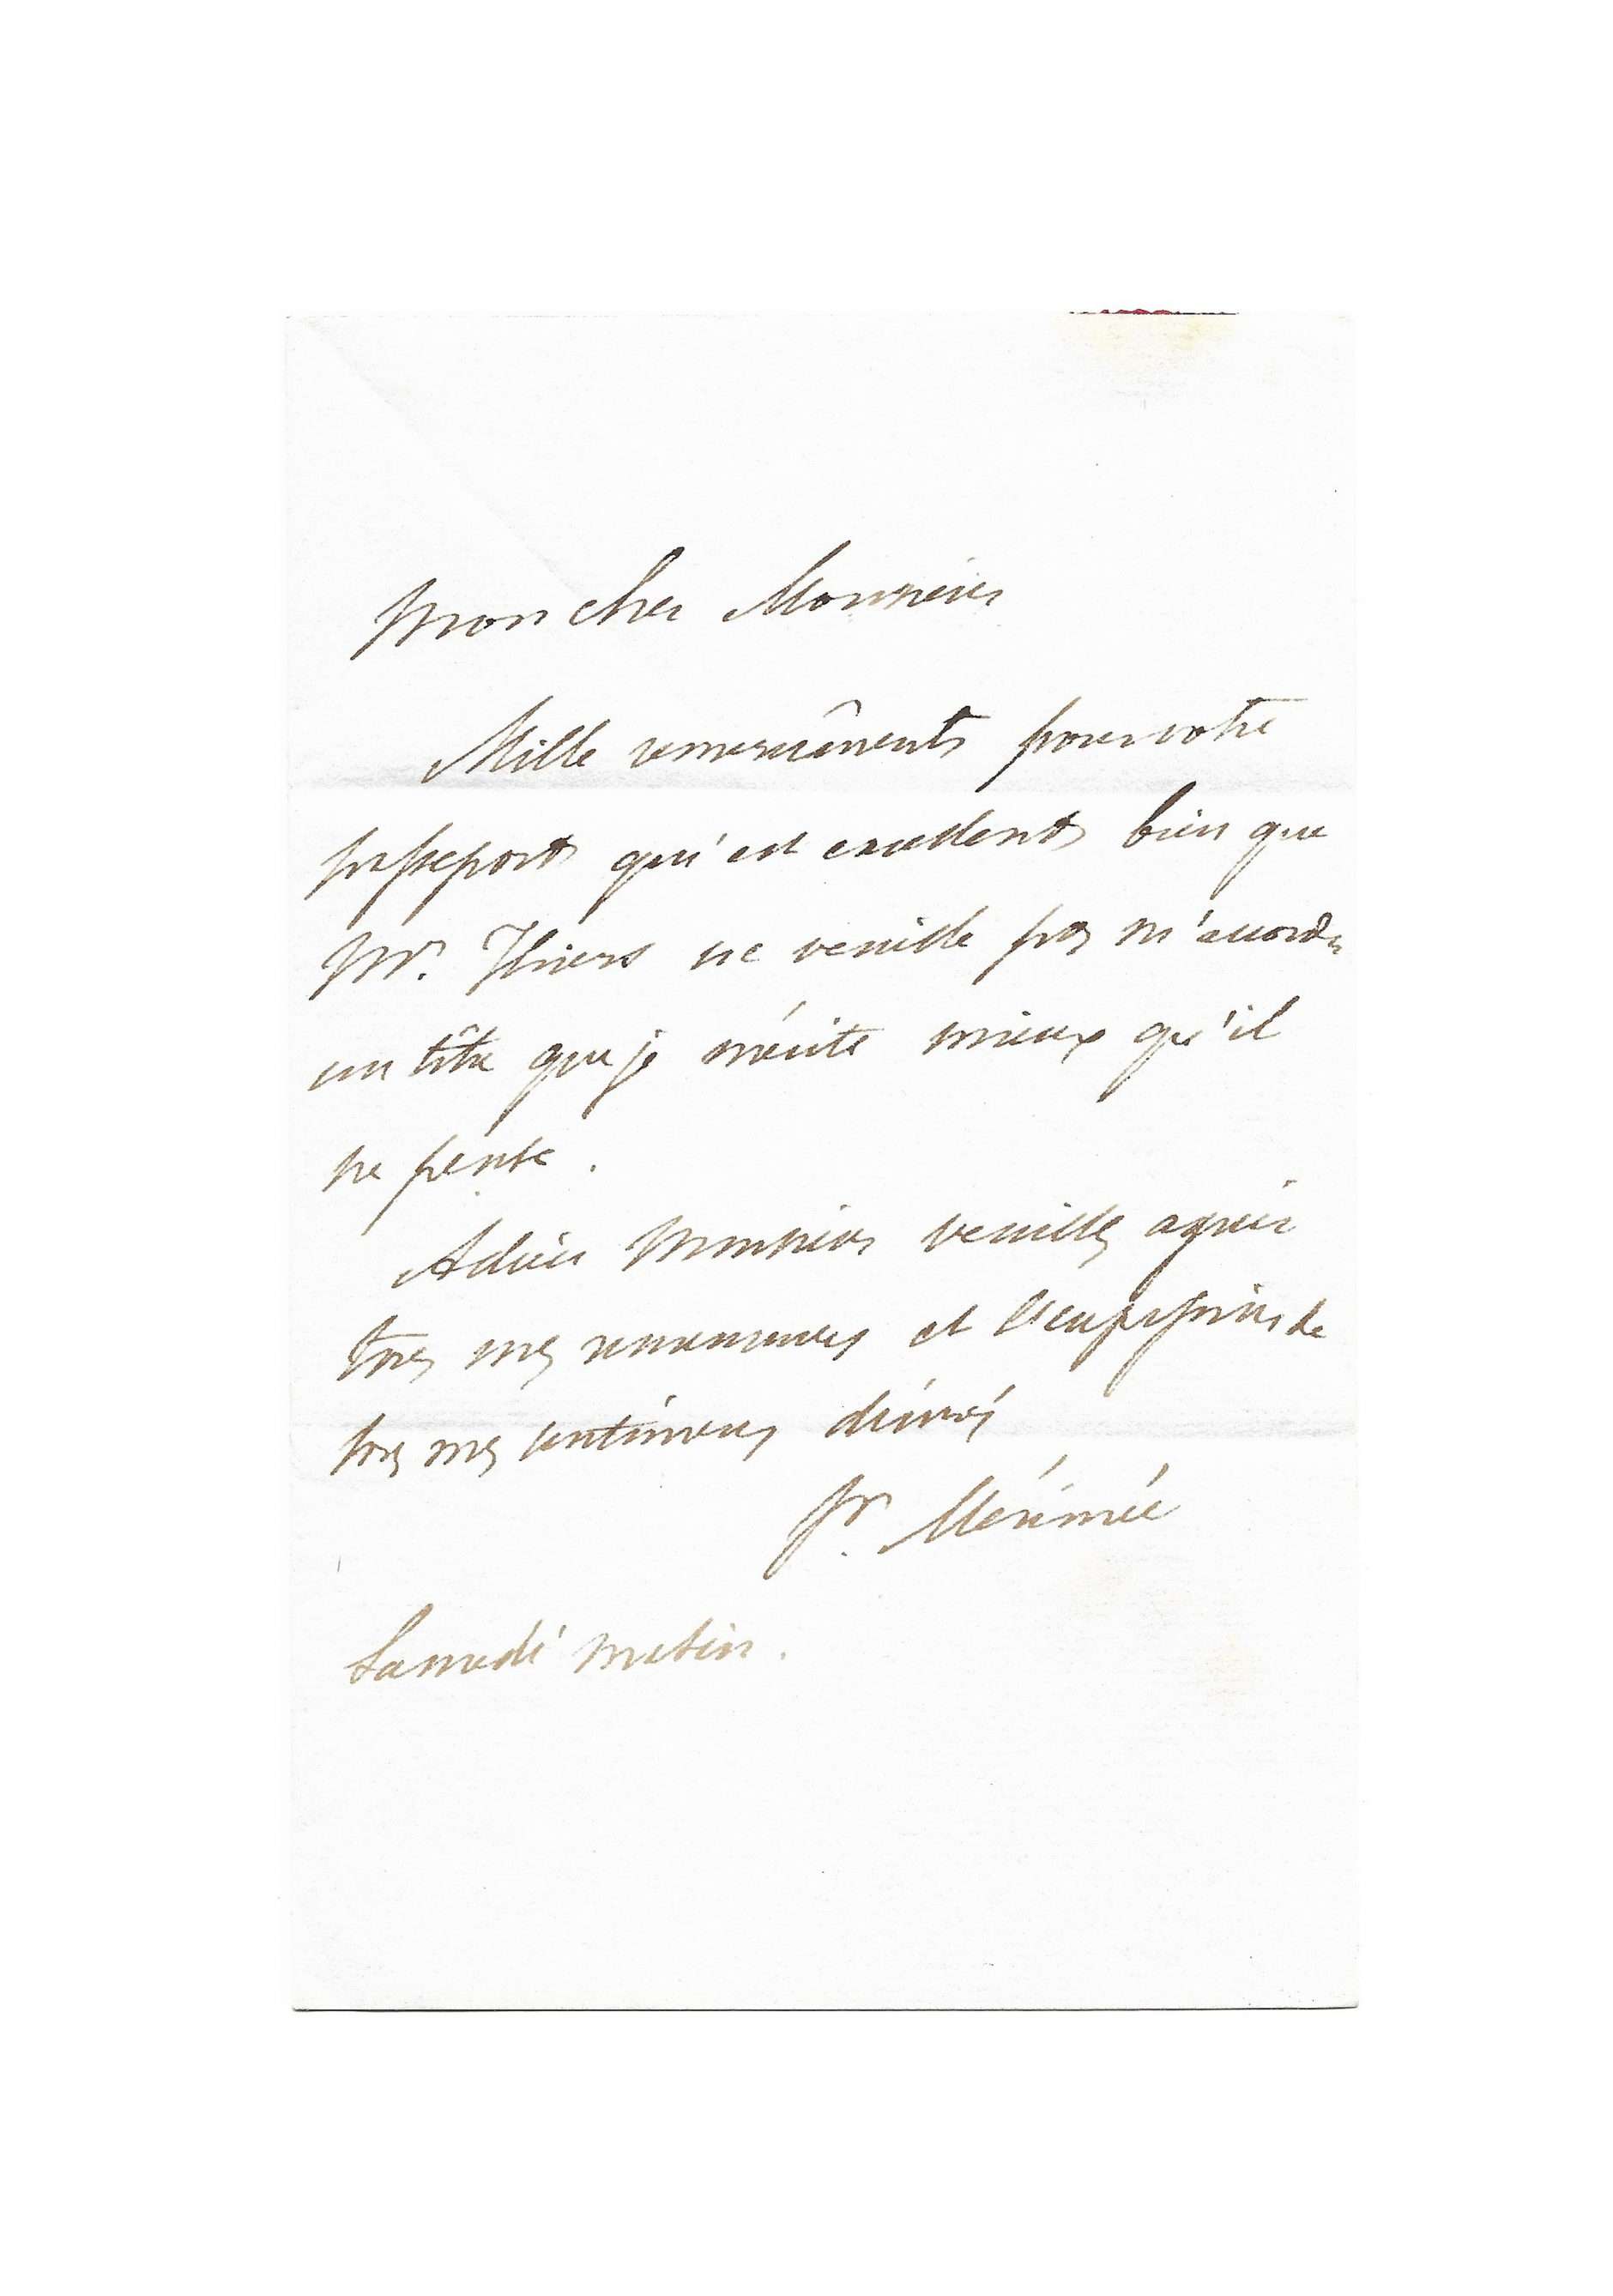 Mon cher Monsieur
Mille remercîments pour votre
passeport qui est excellent, bien que
Mr. Thiers ne veuille pas m'accorder
un titre que je mérite mieux qu'il
ne pense.
Adieu Monsieur veuillez agréer
tous mes remerciements et l'expression de
tous mes sentiments dévoués
Pr. Mérimée
Samedi matin.